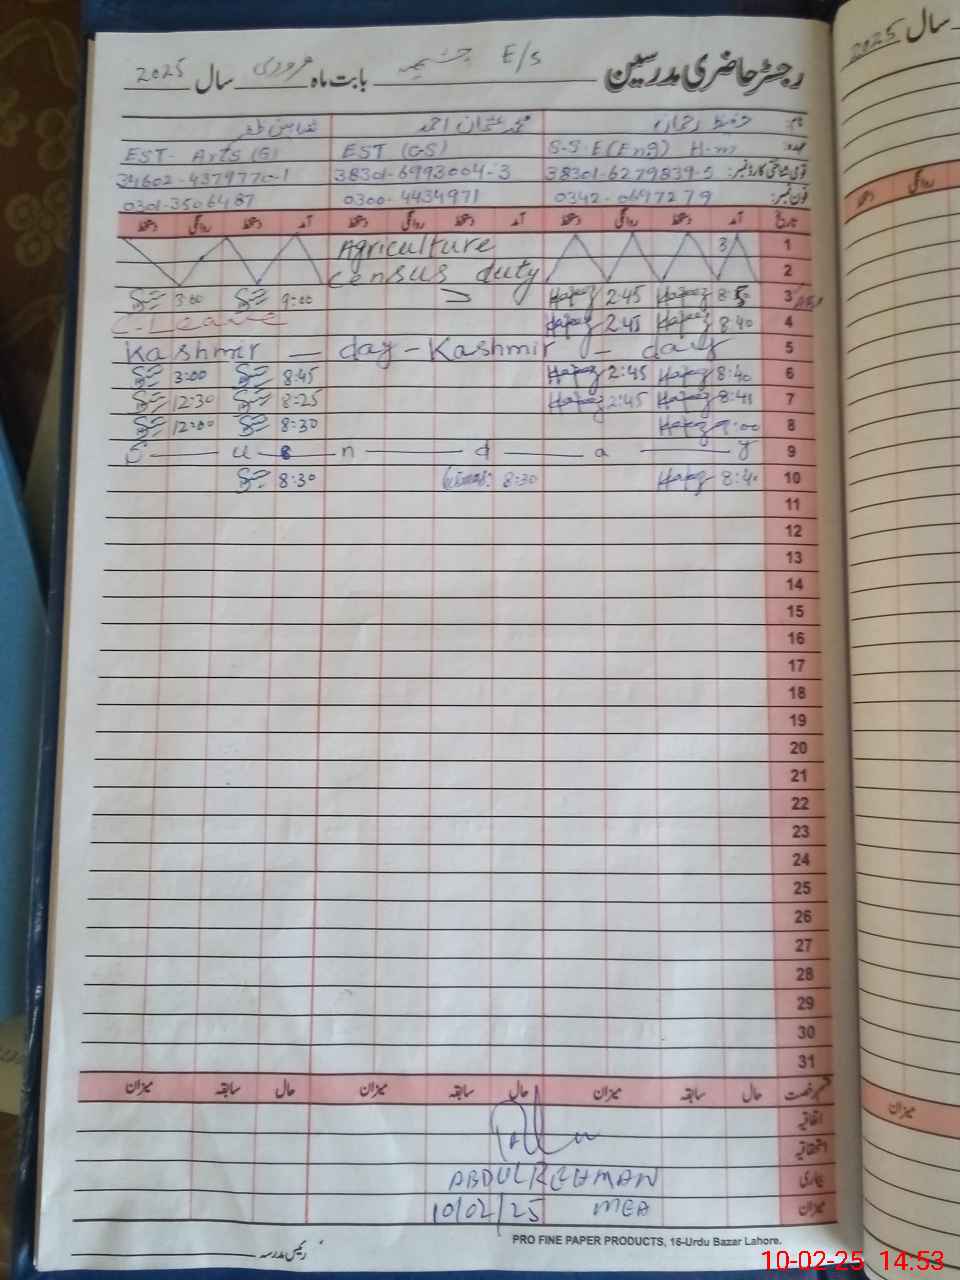 رجسٹر حاضری مدرسین E/S چشمہ بابت ماہ فروری سال 2025
نام: حفیظ رحمان محمد عثمان احمد
عہدہ: S.S.E (Eng) H.m EST (GS) EST- Arts (G)
قومی شناختی کارڈ نمبر: 38301-6279839-5 38301-6993004-3 34602-4379770-1
فون نمبر: 0342-0697279 0300-4434971 0301-3506487
تاریخ آمد دستخط روانگی دستخط آمد دستخط روانگی دستخط آمد دستخط روانگی دستخط
1 Agriculture
2 Census duty
3 Hafeez 2:45 9:00 3:00
4 8:40 Hafeez 2:45 C-Leave
5 Kashmir - day - Kashmir - day
6 8:40 Hafeez 2:45 8:45 3:00
7 8:41 Hafeez 2:45 8:25 12:30
8 9:00 Hafeez 8:30 12:00
9 S u n d a y
10 8:40 Hafeez 8:30 8:30
11
12
13
14
15
16
17
18
19
20
21
22
23
24
25
26
27
28
29
30
31
قسم رخصت حال سابقہ میزان حال سابقہ میزان حال سابقہ میزان
اتفاقیہ
استحقاقیہ
بیماری ABDUL REHMAN
میزان 10/02/25 MEA
رئیس مدرسہ
PRO FINE PAPER PRODUCTS, 16-Urdu Bazar Lahore.
10-02-25 14:53
سال 2025
روانگی دستخط
میزان